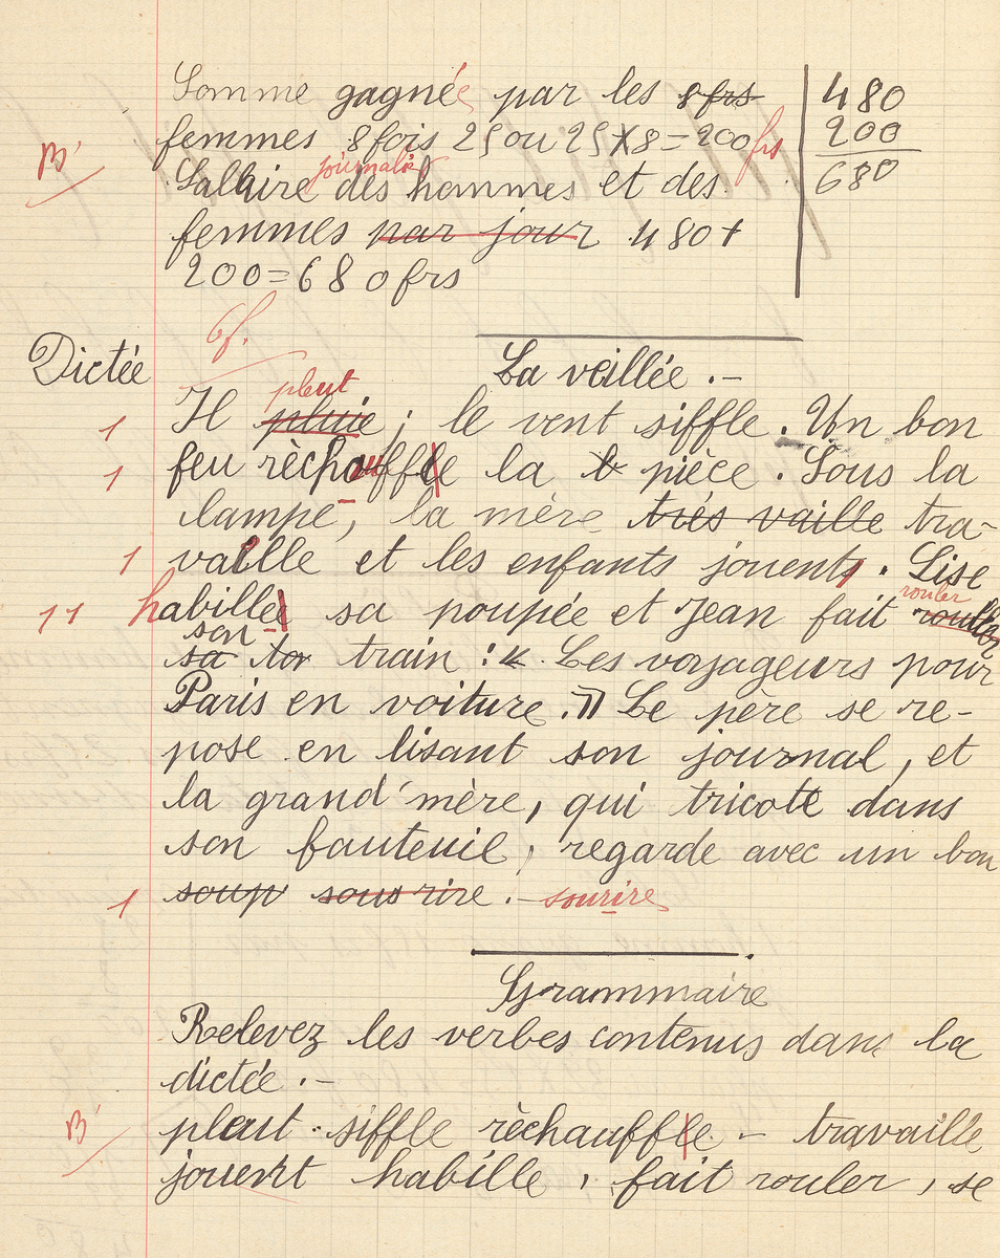 Somme gagnée par les 8 frs
femmes 8 fois 25 ou 25 × 8 = 200 frs
journalier
Salaire des hommes et des
femmes par jour 480 +
200 = 680 frs
480
200
680
B
6f.
Dictée
La veillée . –
pleut
1 Il pluie ; le vent siffle . Un bon
1 feu rèchauffle la b pièce . Sous la
lampe, la mère très vaille tra-
1 vaille et les enfants jouent . Lise
rouler
11 habillee sa poupée et Jean fait rouller
son
sa ton train : « Les voyageurs pour
Paris en voiture . » Le père se re-
pose en lisant son journal, et
la grand'mère, qui tricote dans
son fauteuil, regarde avec un bon
1 soup sousrire . – sourire
Grammaire
Relevez les verbes contenus dans la
dictée . –
B
pleut - siffle rèchauffle . – travaille
jouent habille , fait rouler , se